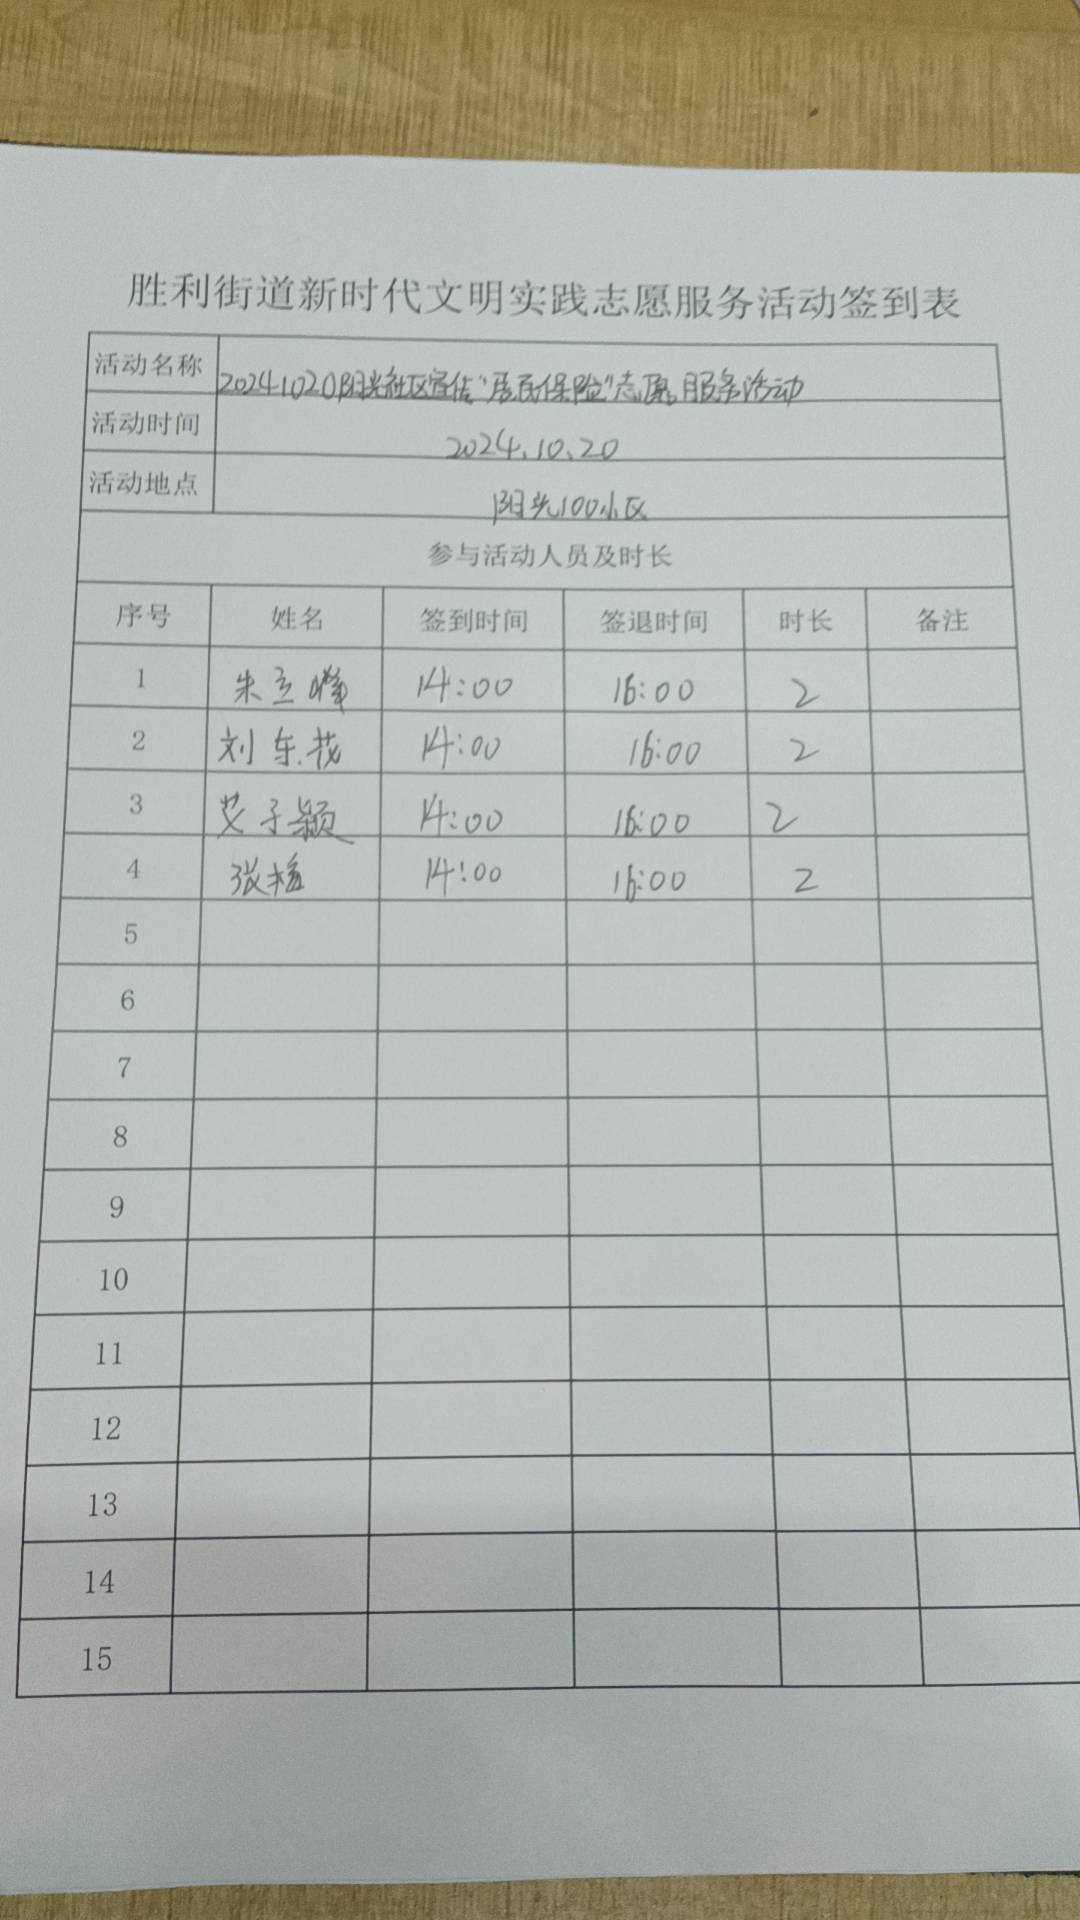 胜利街道新时代文明实践志愿服务活动签到表
活动名称 20241020阳光社区宣传“居民保险”志愿服务活动
活动时间 2024.10.20
活动地点 阳光100小区
参与活动人员及时长
序号 姓名 签到时间 签退时间 时长 备注
1 朱立峰 14:00 16:00 2
2 刘东茂 14:00 16:00 2
3 艾子颖 14:00 16:00 2
4 张梅 14:00 16:00 2
5
6
7
8
9
10
11
12
13
14
15